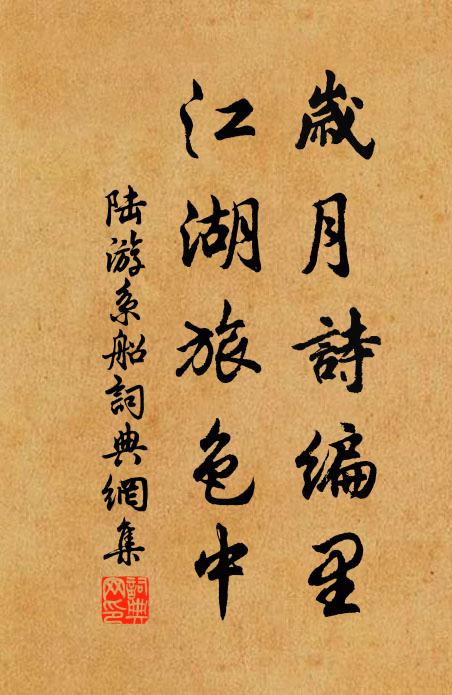 歲月詩編里
江湖旅色中
陆游系船詞典網集
詞典
网